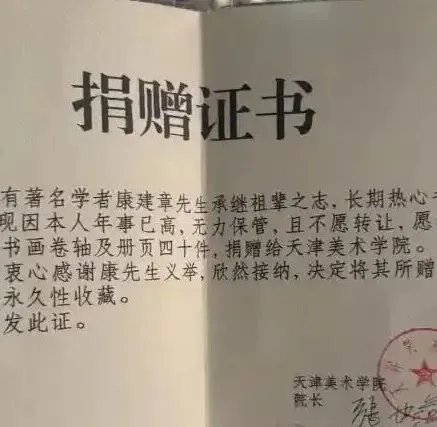 捐赠证书
有著名学者康建章先生承继祖辈之志，长期热心
现因本人年事已高，无力保管，且不愿转让，愿
书画卷轴及册页四十件，捐赠给天津美术学院。
衷心感谢康先生义举，欣然接纳，决定将其所赠
永久性收藏。
发此证。
天津美术学院
院长